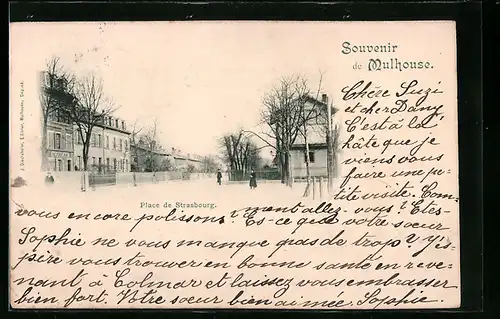 Souvenir
de Mulhouse.
Chère Suzi
et cher Dany,
C'est à la
hâte que je
viens vous
faire une pe-
tite visite. Com-
Place de Strasbourg.
ment allez-vous? Etes-
vous encore polissons? Es-ce que votre sœur
Sophie ne vous manque pas de trop? J'es-
père vous trouver en bonne santé en reve-
nant à Colmar et laissez vous embrasser
bien fort. Votre sœur bien aimée. Sophie.